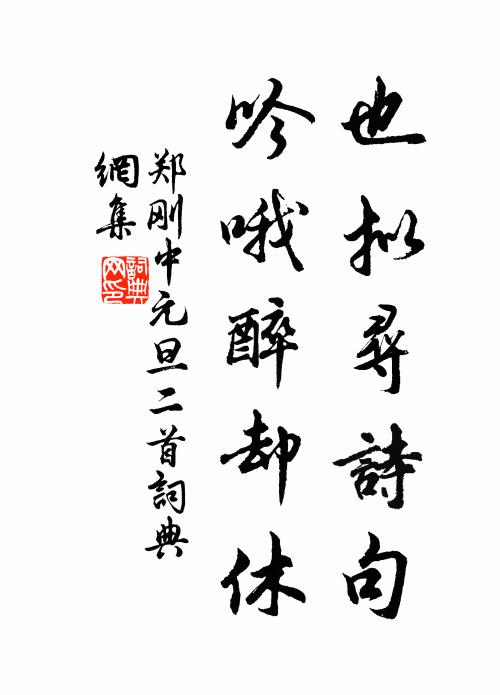 也拟尋詩句
吟哦醉却休
郑刚中元旦二首詞典
網集
詞典
网印